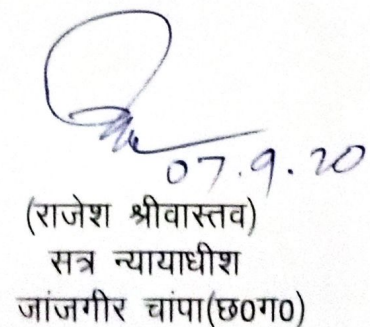 07.9.20
(राजेश श्रीवास्तव)
सत्र न्यायाधीश
जांजगीर चांपा(छ0ग0)